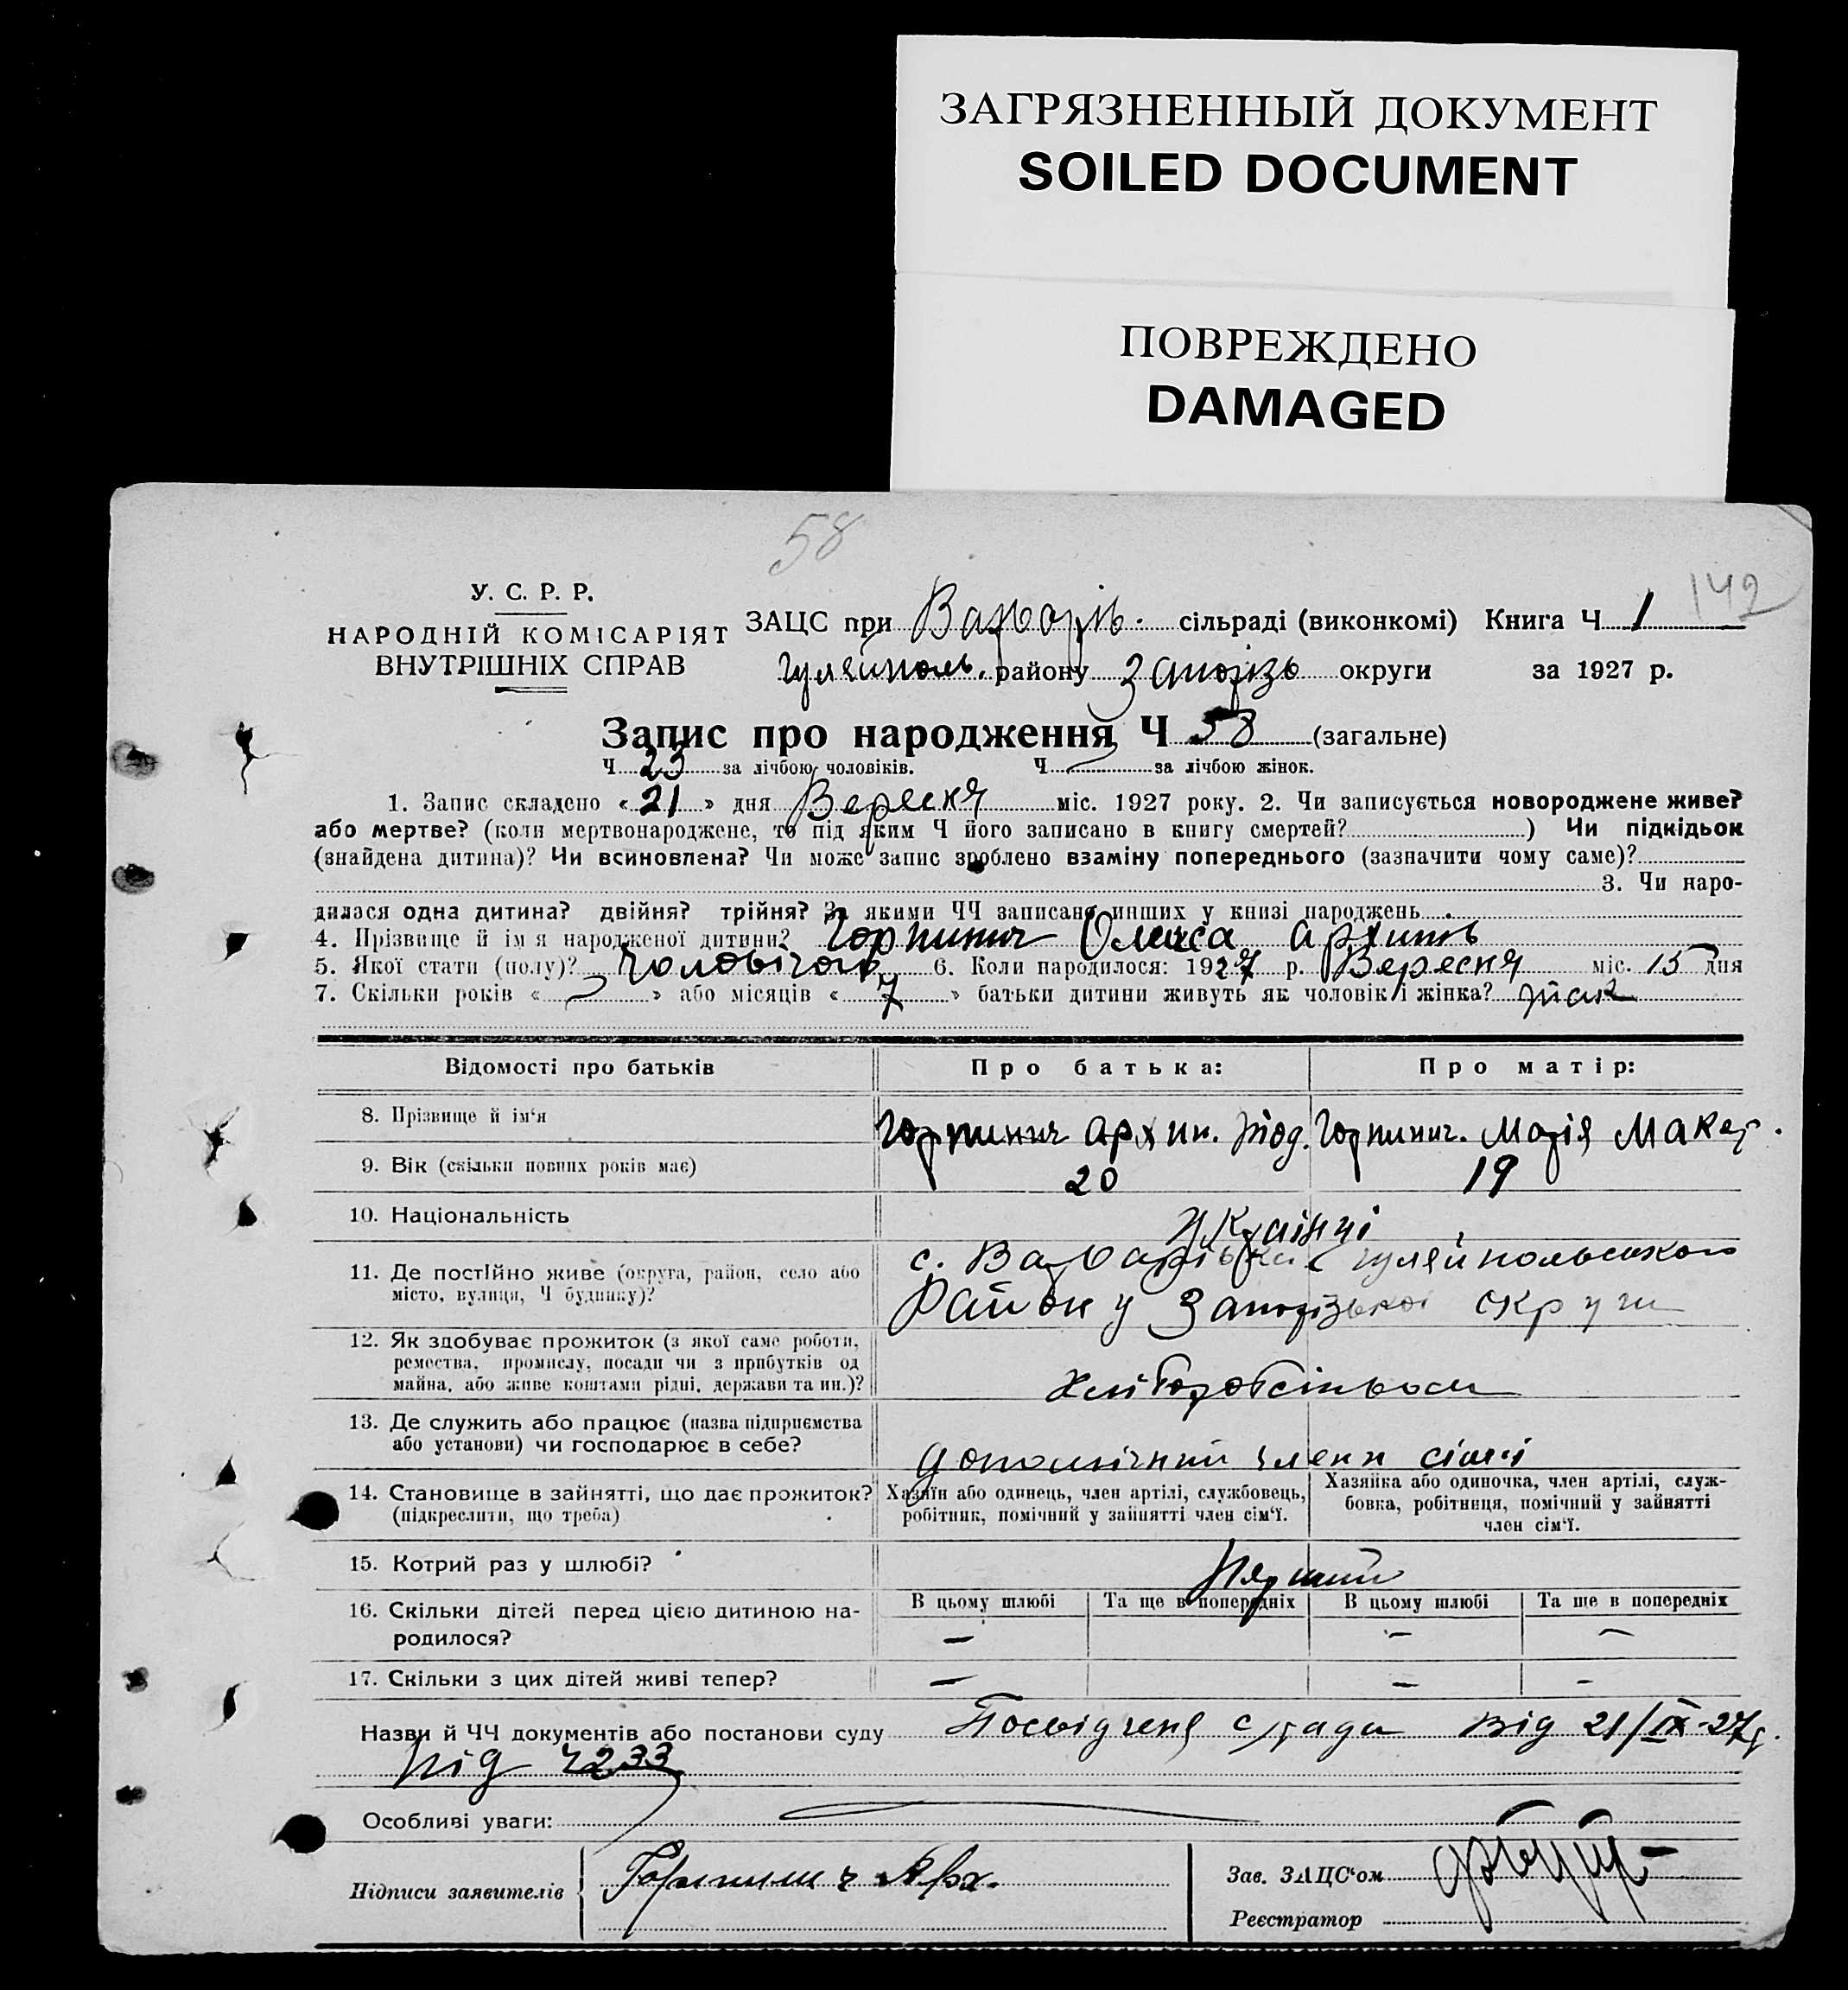 ЗАГРЯЗНЕННЫЙ ДОКУМЕНТ
SOILED DOCUMENT
ПОВРЕЖДЕНО
DAMAGED
58
142
У. С. Р. Р.
НАРОДНІЙ КОМІСАРІЯТ
ВНУТРІШНІХ СПРАВ
ЗАЦС при Варварів. сільраді (виконкомі) Книга Ч 1
Гуляйполь. району Запорізь округи за 1927 р.
Запис про народження Ч 58 (загальне)
Ч 23 за лічбою чоловіків. Ч за лічбою жінок.
1. Запис складено « 21 » дня Вересня міс. 1927 року. 2. Чи записується новороджене живе?
або мертве? (коли мертвонароджене, то під яким Ч його записано в книгу смертей? ) Чи підкідьок
(знайдена дитина)? Чи всиновлена? Чи може запис зроблено взаміну попереднього (зазначити чому саме)?
3. Чи наро-
дилася одна дитина? двійня? трійня? За якими ЧЧ записано инших у книзі народжень
4. Прізвище й ім'я народженої дитини? Горпинич
5. Якої стати (полу)? Чоловічої 6. Коли народилося: 1927 р. Вересня міс. 15 дня
7. Скільки років « » або місяців « 7 » батьки дитини живуть як чоловік і жінка? так
Відомості про батьків Про батька: Про матір:
8. Прізвище й ім'я Горпинич Архип. Горпинич. Марія Макар.
9. Вік (скільки повних років має) 20 19
10. Національність Українці
11. Де постійно живе (округа, район, село або с. Варварівка Гуляйпольського
місто, вулиця, Ч будинку)? Району Запорізької округи
12. Як здобуває прожиток (з якої саме роботи,
ремества, промислу, посади чи з прибутків од
майна, або живе коштами рідні, держави та ин.)? Хліборобством
13. Де служить або працює (назва підприємства
або установи) чи господарює в себе? допомічний член сімї
14. Становище в зайнятті, що дає прожиток? Хазяїн або одинець, член артілі, службовець, Хазяйка або одиночка, член артілі, служ-
(підкреслити, що треба) робітник, помічний у зайнятті член сім'ї. бовка, робітниця, помічний у зайнятті
член сім'ї.
15. Котрий раз у шлюбі? Перший
16. Скільки дітей перед цією дитиною на- В цьому шлюбі Та ще в попередніх В цьому шлюбі Та ще в попередніх
родилося? — — —
17. Скільки з цих дітей живі тепер? — — -
Назви й ЧЧ документів або постанови суду Посвідченя с/ради від 21/ІХ-27р.
під Ч233
Особливі уваги:
Підписи заявителів Горпинич Арх.
Зав. ЗАЦС'ом
Реєстратор